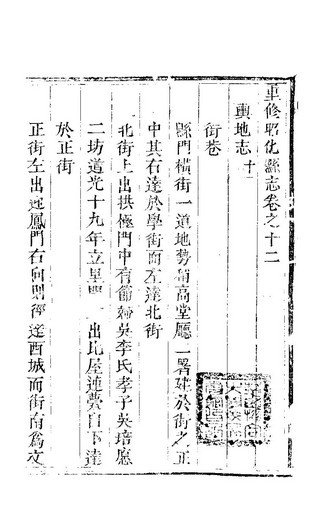 重修昭化縣志卷之十二
輿地志十一
街巷
縣門橫街一道地勢稍高堂廳二署建於街之正
中其右達於學街而左達北街
北街上出拱極門中有節婦吳李氏孝子吳培應
二坊道光十九年立旱 出比屋連甍自下達
於正街
正街左出迎鳳門右向則徑達西城而街南為文